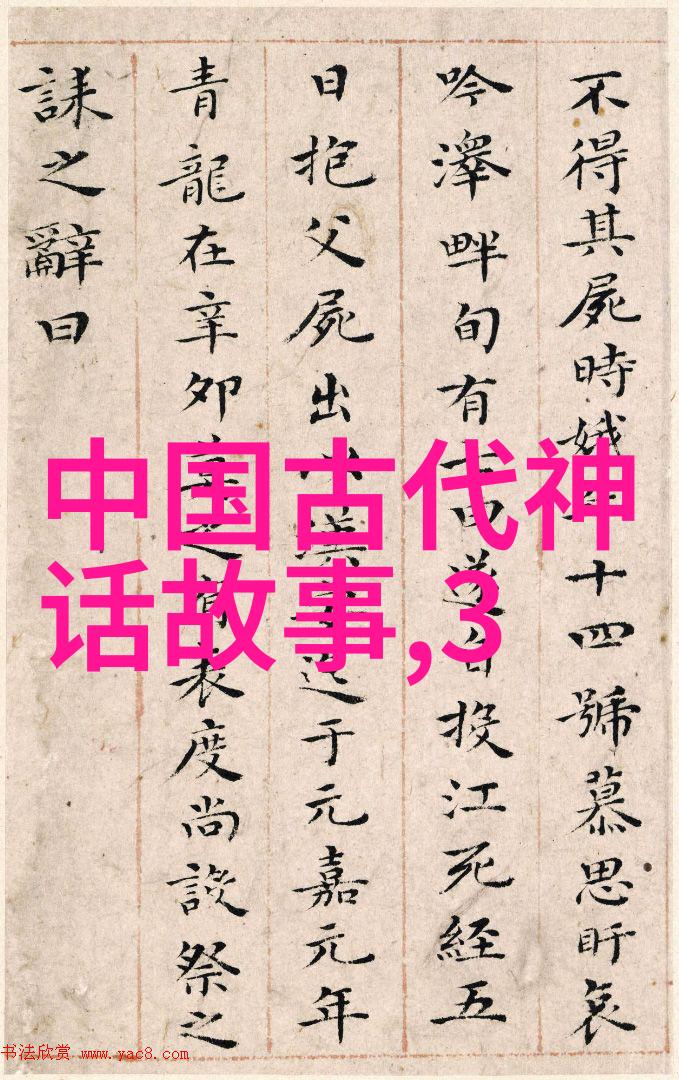 不得其屍時娥年十四號慕思盱哀
吟澤畔旬有七日遂自投江死經五
日抱父屍出以漢安迄于元嘉元年
青龍在辛卯莫之有表度尚設祭之
誄之辭曰
中国古代神
话故事,3
书法欣赏 www.yac8.com